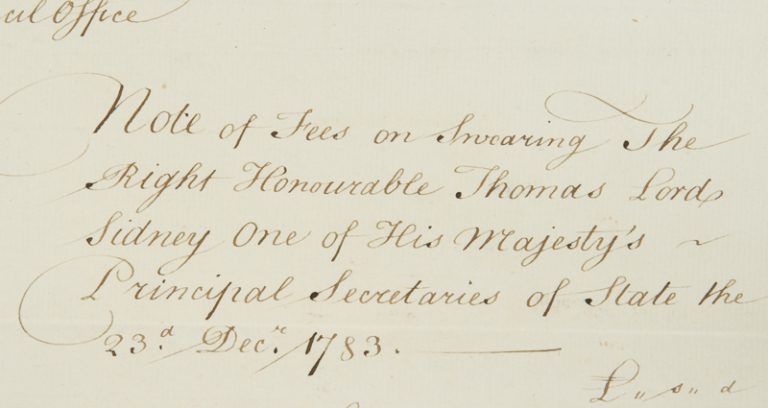 cil Office
Note of Fees on Swearing The
Right Honourable Thomas Lord
Sidney One of His Majesty's ~
Principal Secretaries of State the
23.d Decr. 1783. ———
L " s " d